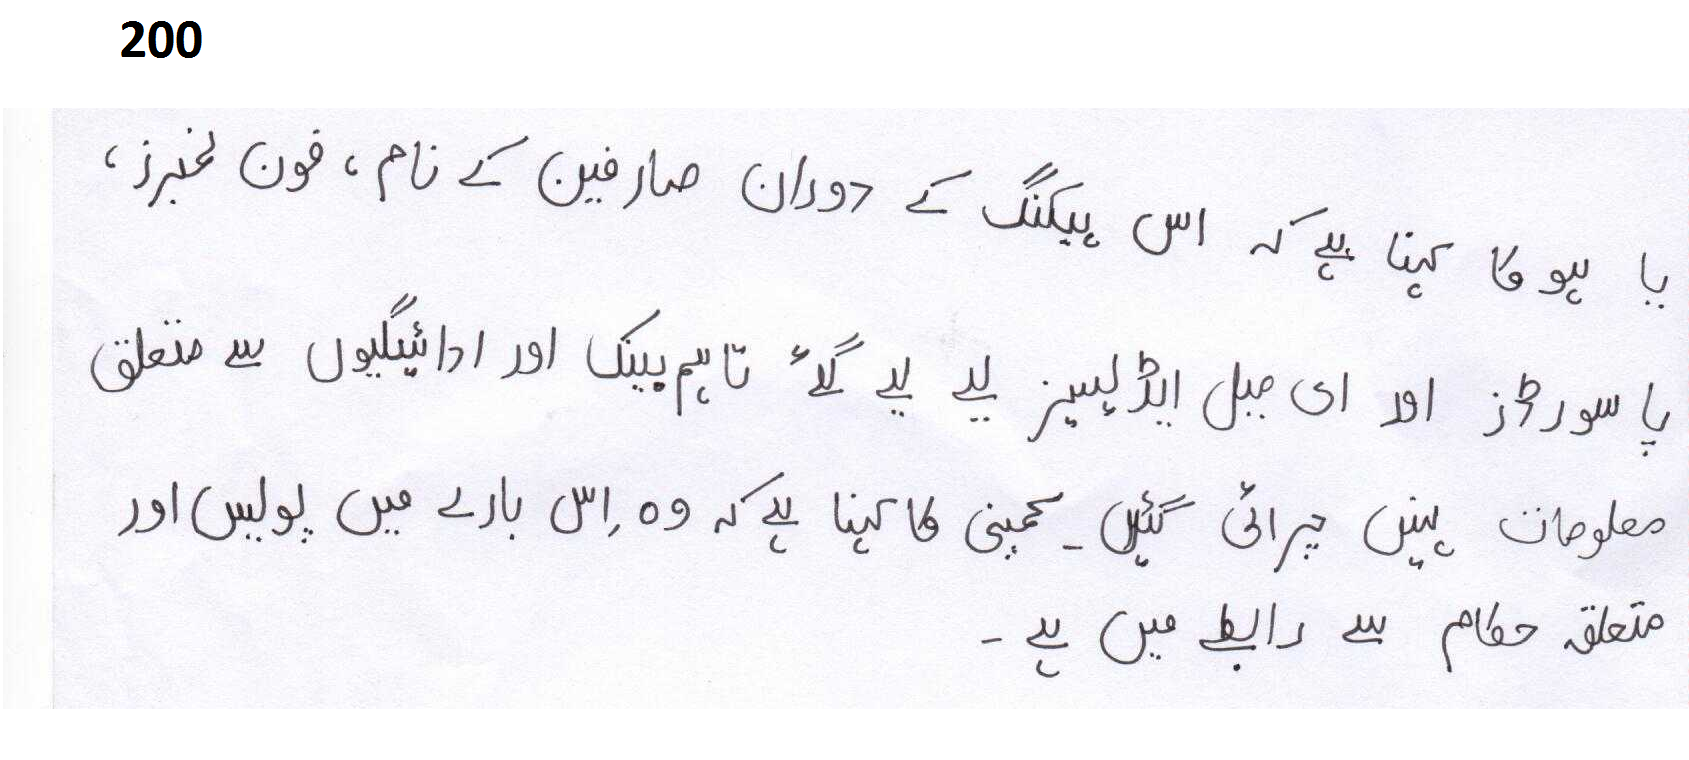 200
یا ہو کا کہنا ہے کہ اس ہیکنگ کے دوران صارفین کے نام، فون نمبرز،
پاسورڈز اور ای میل ایڈلیسیز لیے لیے گئے تاہم بینک اور ادائیگیوں سے متعلق
معلومات نہیں چرائی گئیں۔ کمپنی کا کہنا ہے کہ وہ اِس بارے میں پولیس اور
متعلقہ حکام سے رابطے میں ہے۔